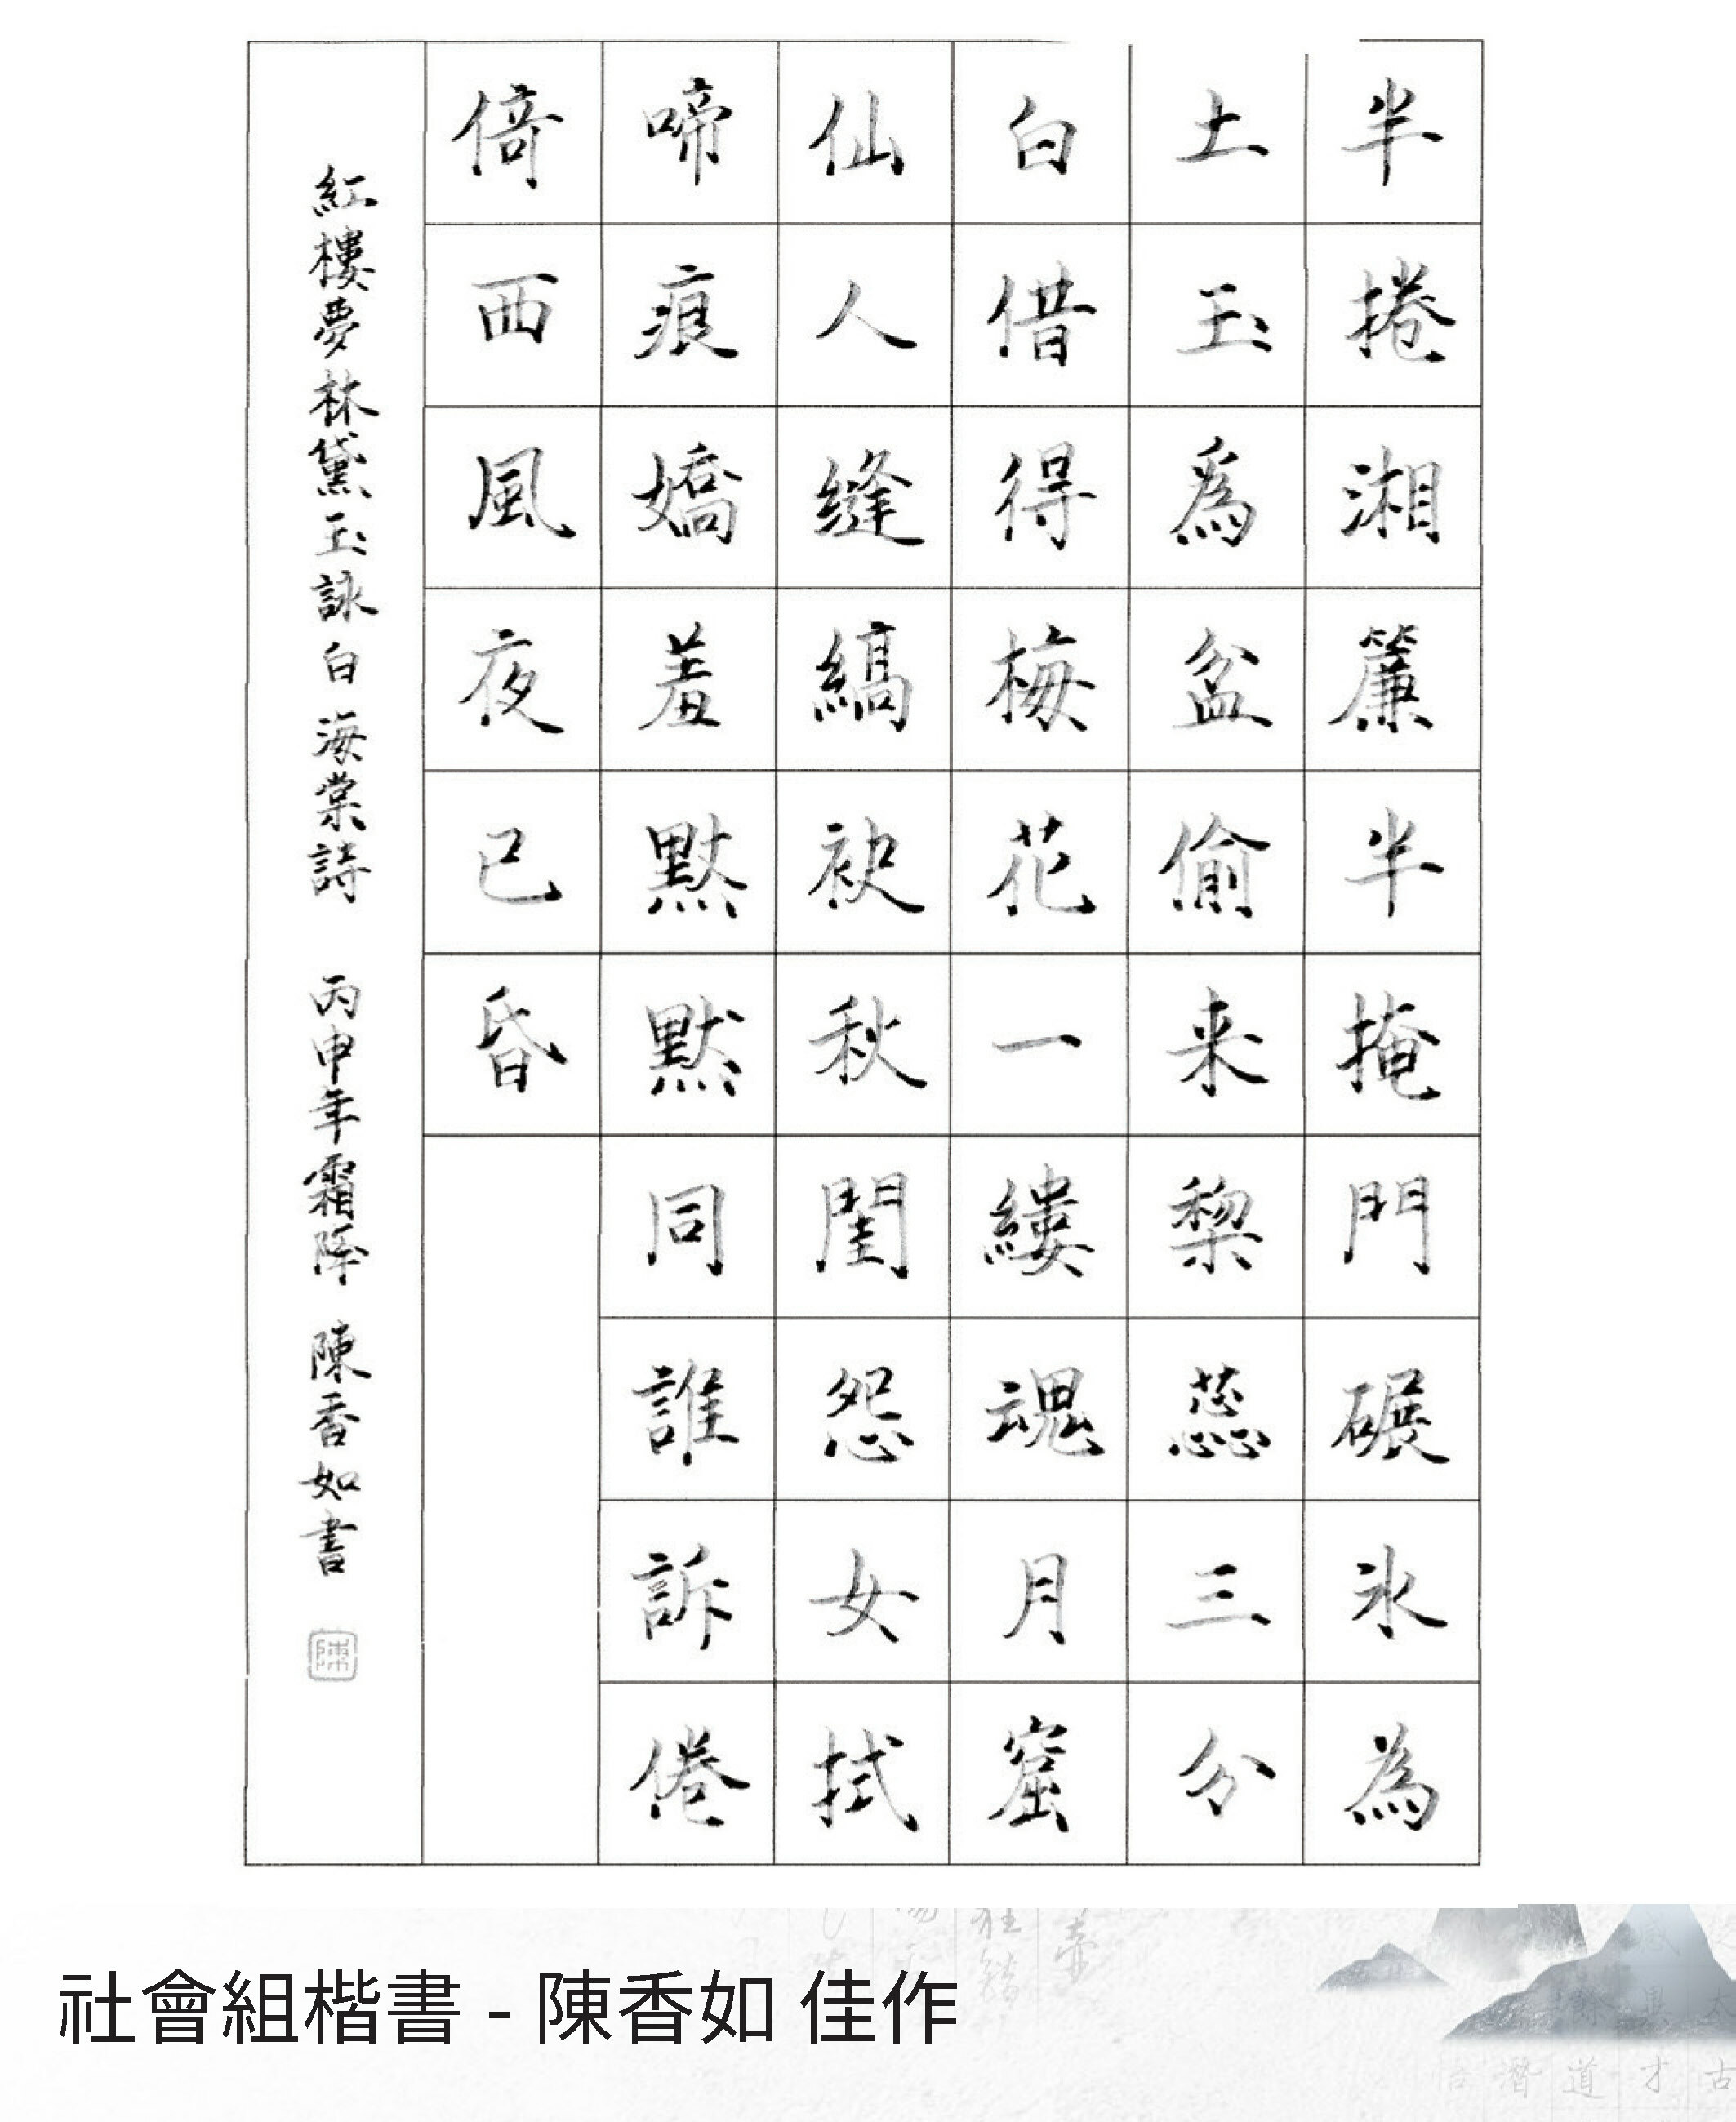 半捲湘簾半掩門碾氷為
土玉為盆偷来棃蕊三分
白借得梅花一縷魂月窟
仙人縫縞袂秋閨怨女拭
啼痕嬌羞默默同誰訴倦
倚西風夜已昏
紅樓夢林黛玉詠白海棠詩 丙申年霜降 陳香如書
陳
社會組楷書 - 陳香如 佳作